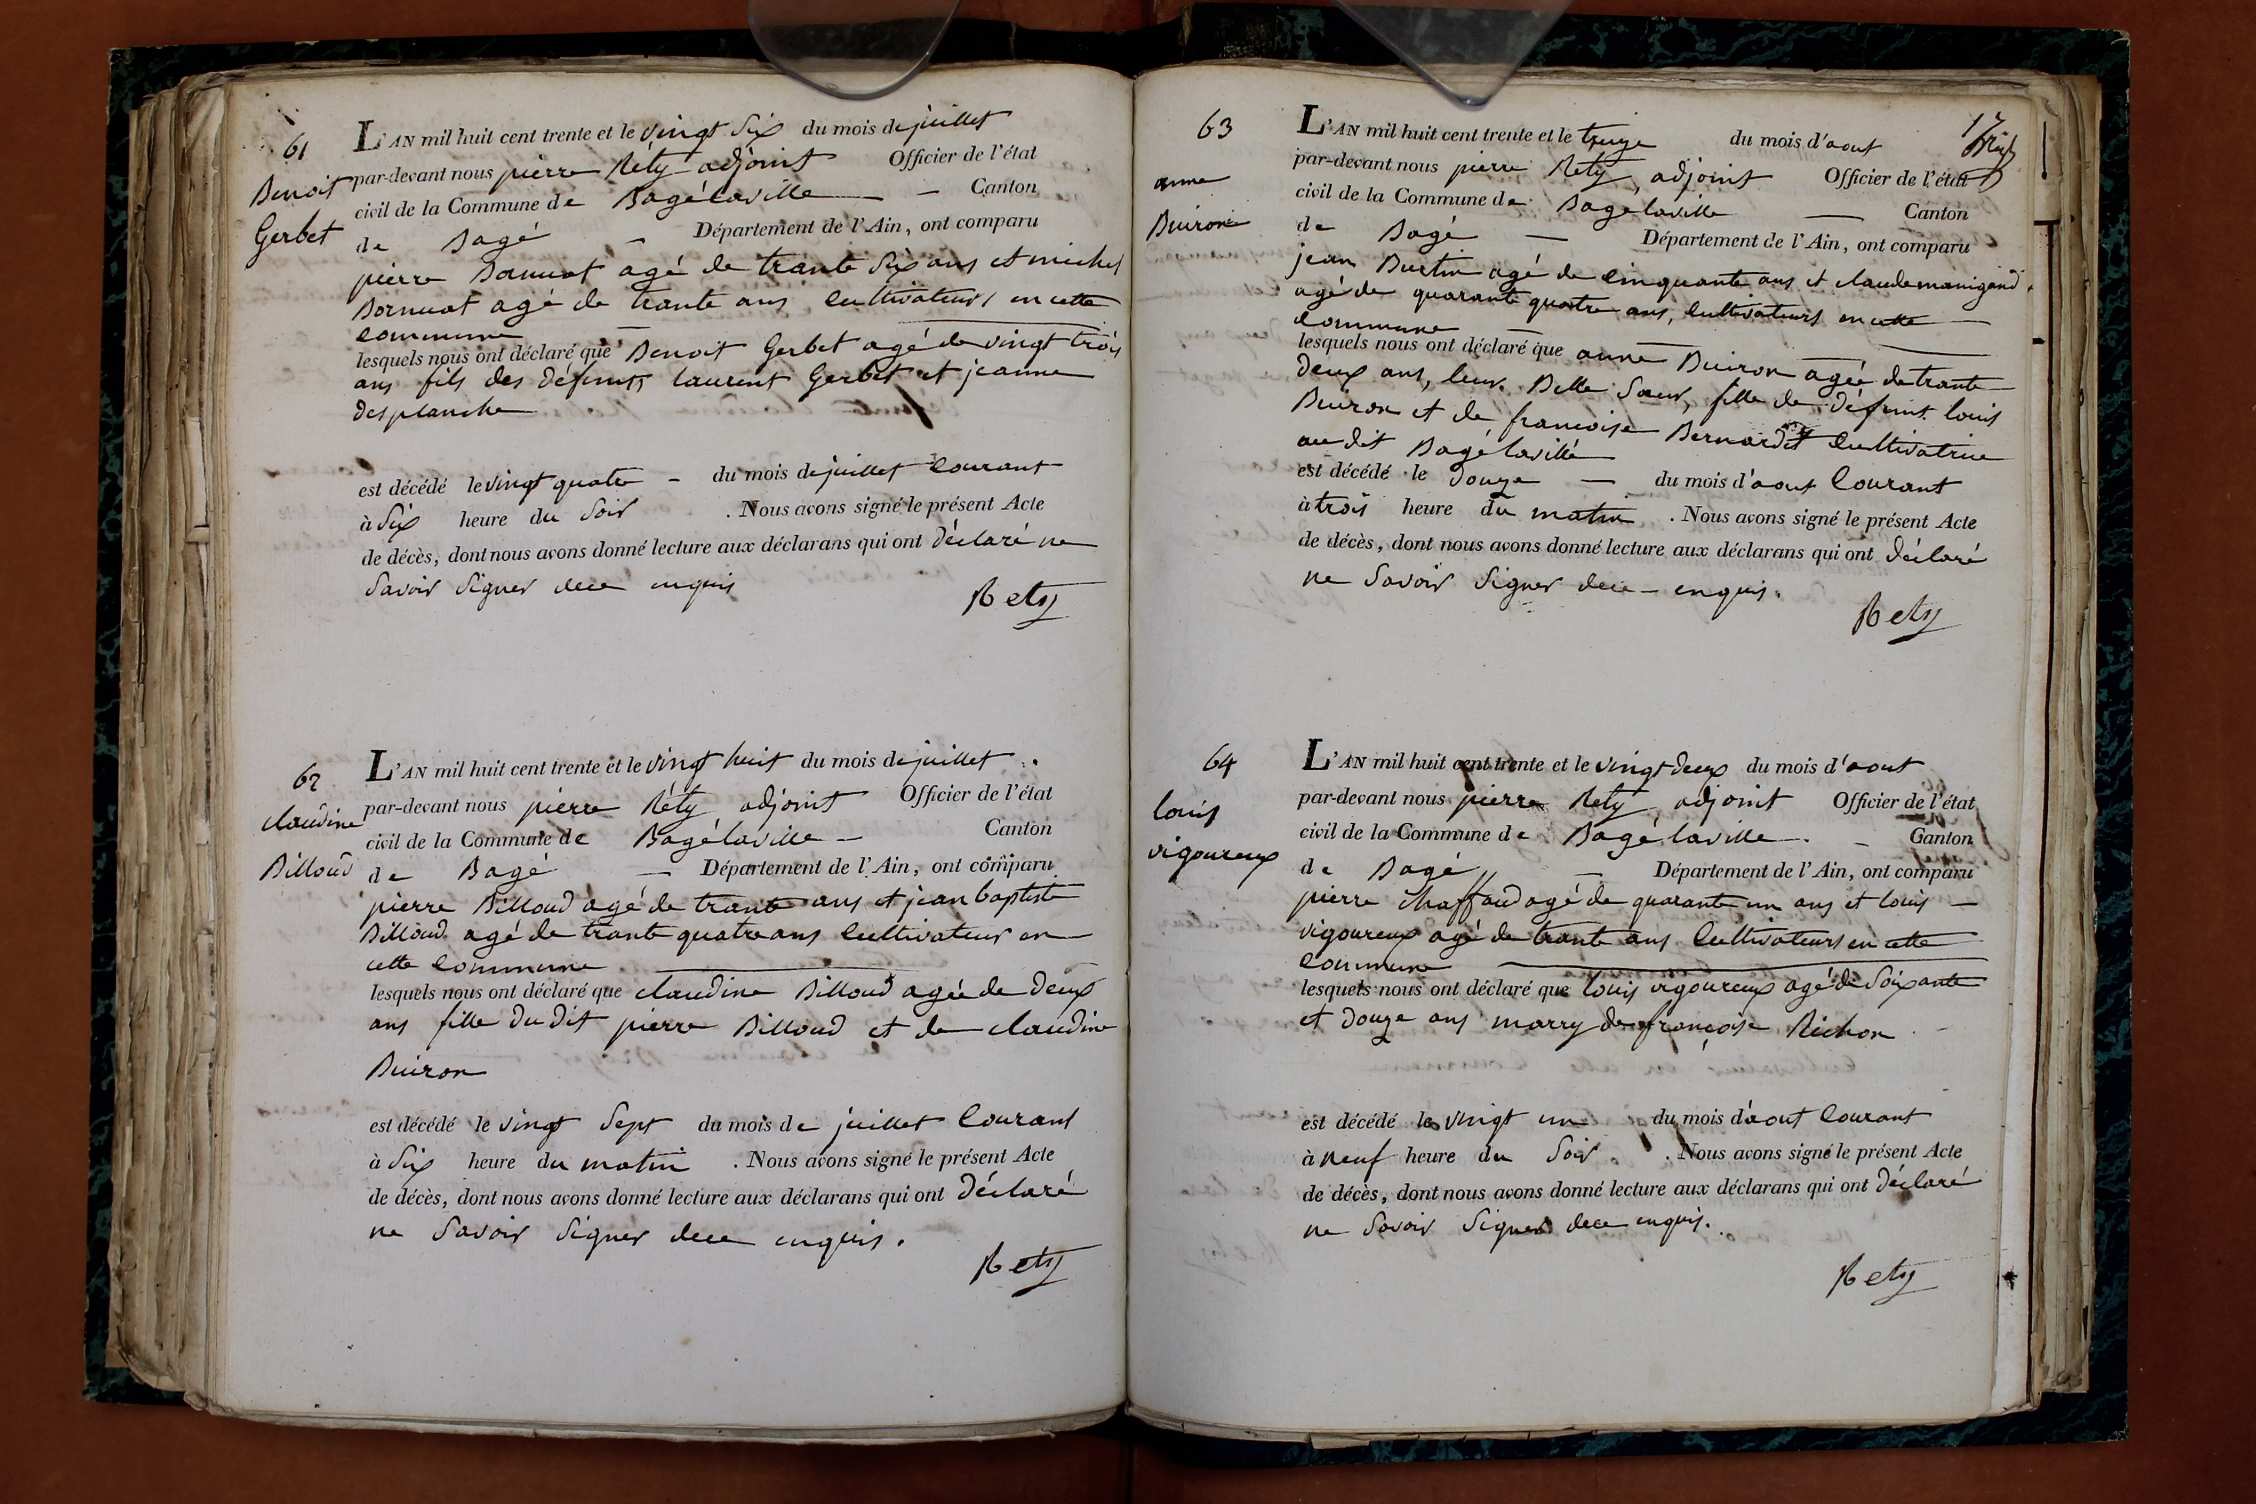 61
Benoit
Gerbet
L'AN mil huit cent trente et le vingt six du mois de juillet
par-devant nous pierre Réty adjoint Officier de l'état
civil de la Commune de Bagélaville — Canton
de Bagé — Département de l'Ain, ont comparu
pierre agé de trante six ans et michel
agé de trante ans Cultivateurs en cette
Commune
lesquels nous ont déclaré que Benoit Gerbet agé de vingt trois
ans fils des défunts laurent Gerbet et jeanne
desplanche
est décédé le vingt quatre — du mois de juillet Courant
à Six heure du Soir . Nous avons signé le présent Acte
de décès, dont nous avons donné lecture aux déclarans qui ont déclaré ne
Savoir Signer dece enquis
Rety
62
claudine
Billoud
L'AN mil huit cent trente et le vingt huit du mois de juillet
par-devant nous pierre Réty adjoint Officier de l'état
civil de la Commune de Bagélaville — Canton
de Bagé — Département de l'Ain, ont comparu
pierre Billoud agé de trante ans et jean baptiste
Billoud agé de trante quatre ans Cultivateur en
cette Commune
lesquels nous ont déclaré que claudine Billoud agée de deux
ans fille du dit pierre Billoud et de claudine
Buiron
est décédé le vingt Sept du mois de juillet Courant
à Six heure du matin . Nous avons signé le présent Acte
de décès, dont nous avons donné lecture aux déclarans qui ont déclaré
ne Savoir Signer dece enquis.
Rety
17
63
anne
Buiron
L'AN mil huit cent trente et le treize du mois d'aout
par-devant nous pierre Rety, adjoint Officier de l'état
civil de la Commune de Bagélaville — Canton
de Bagé — Département de l'Ain, ont comparu
jean Burtin agé de Cinquante ans et claude manigand
agé de quarante quatre ans, Cultivateurs en cette —
Commune
lesquels nous ont déclaré que anne Buiron agée de trante
deux ans, leur Belle Sœur, fille de défunt louis
Buiron et de francoise Bernardet Cultivatrice
au dit Bagélaville
est décédé le douze — du mois d'aout Courant
à trois heure du matin . Nous avons signé le présent Acte
de décès, dont nous avons donné lecture aux déclarans qui ont déclaré
ne Savoir Signer dece — enquis.
Rety
64
louis
vigoureux
L'AN mil huit cent trente et le vingt deux du mois d'aout
par-devant nous pierre Rety adjoint Officier de l'état
civil de la Commune de Bagélaville. — Canton
de Bagé — Département de l'Ain, ont comparu
pierre Chaffaud agé de quarante un ans et louis —
vigoureux agé de trante ans Cultivateurs en cette
Commune
lesquels nous ont déclaré que louis vigoureux agé de Soixante
et douze ans marry de françoise Richon
est décédé le vingt un du mois d'aout Courant
à neuf heure du Soir. . Nous avons signé le présent Acte
de décès, dont nous avons donné lecture aux déclarans qui ont déclaré
ne Savoir Signer dece enquis.
Rety